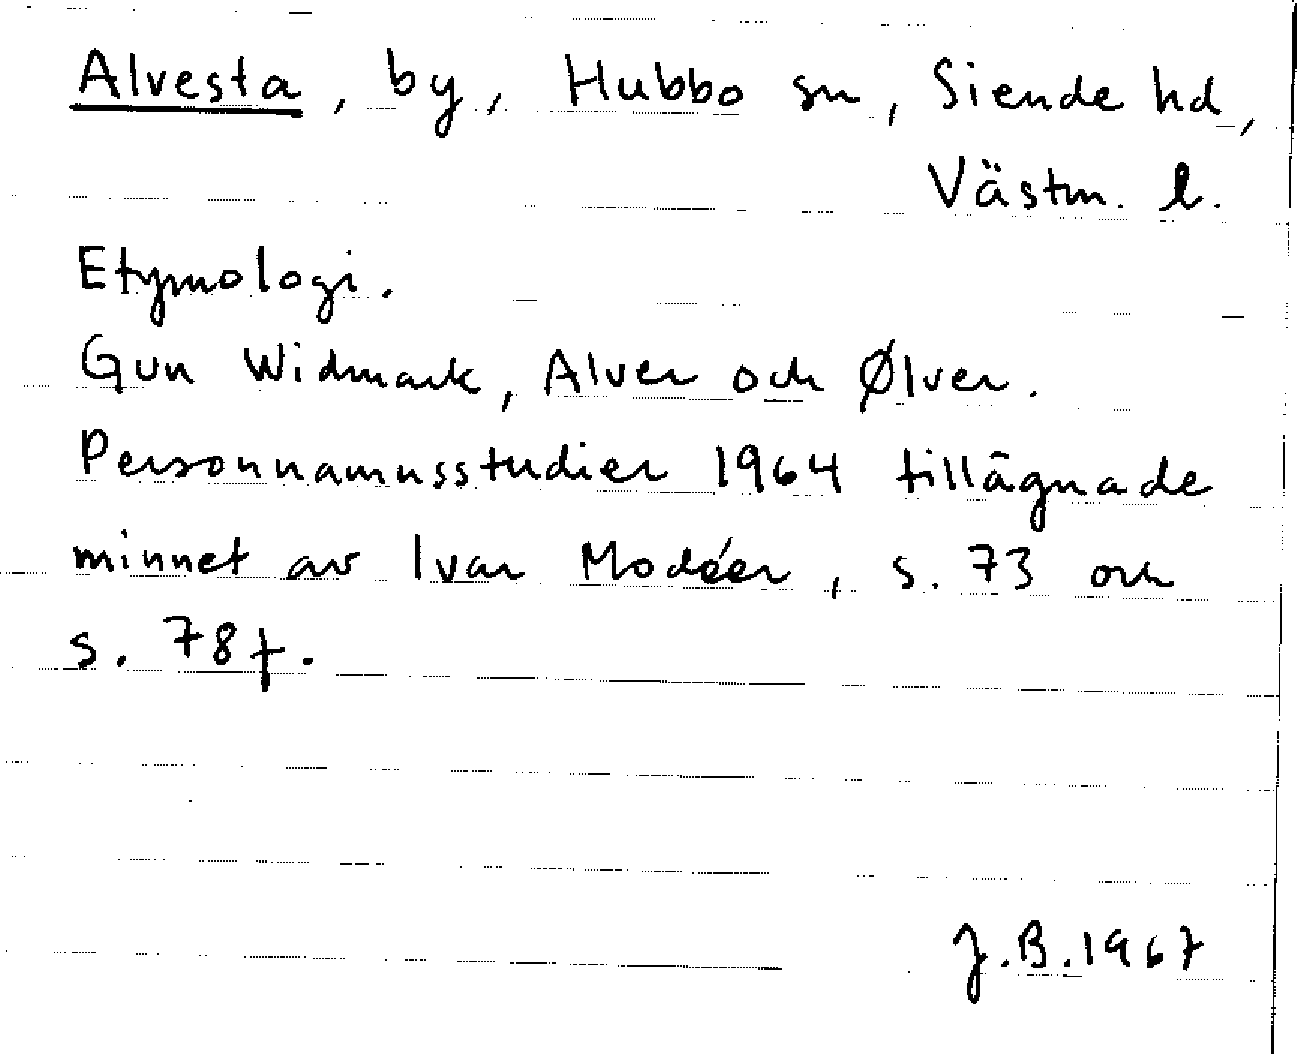 Alvesta, by, Hubbo sn, Siende hd,
Västm. l.
Etymologi.
Gun Widmark, Alver och Ølver.
Personnamnsstudier 1964 tillägnade
minnet av Ivar Modéer, s. 73 och
s. 78f.
J.B.1967